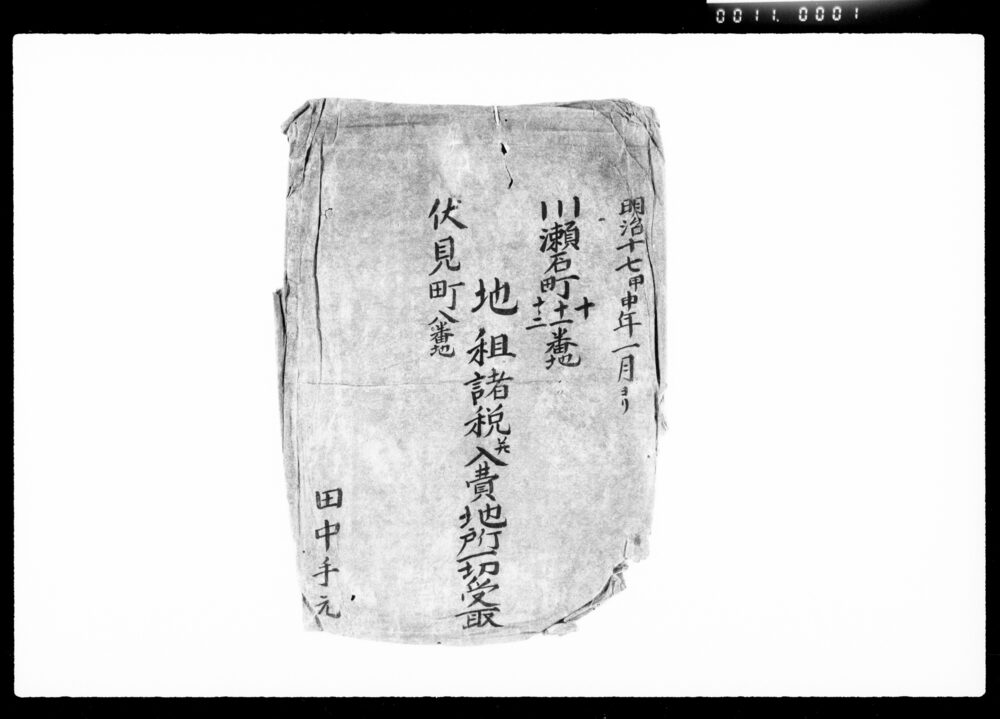 0011. 0001
明治十七甲申年一月ヨリ
川瀬石町十十一十二番地
伏見町八番地
地租諸税入費地所一切受取
田中手元